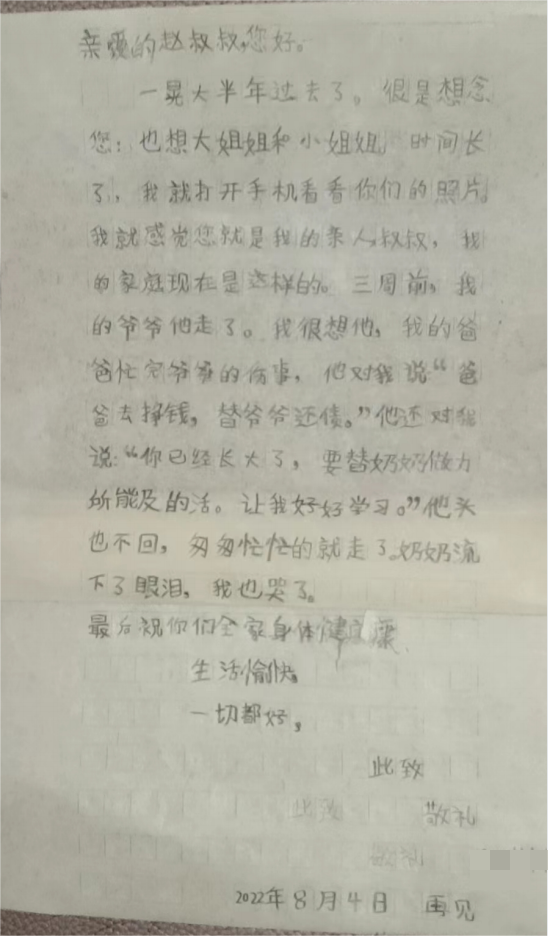 亲爱的赵叔叔,您好。
一晃大半年过去了。很是想念
您；也想大姐姐和小姐姐，时间长
了，我就打开手机看看你们的照片。
我就感觉您就是我的亲人叔叔，我
的家庭现在是这样的。三周前，我
的爷爷他走了。我很想他，我的爸
爸忙完爷爷的伤事，他对我说“爸
爸去挣钱，替爷爷还债。”他还对我
说：“你已经长大了，要替奶奶做力
所能及的活。让我好好学习。”他头
也不回，匆匆忙忙的就走了。奶奶流
下了眼泪，我也哭了。
最后祝你们全家身体健康
生活愉快。
一切都好，
此致
此致 敬礼
敬礼
2022年8月4日 再见